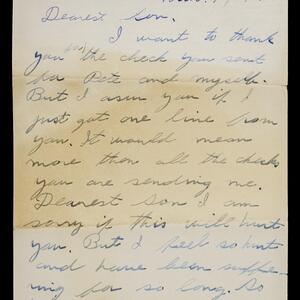 Dearest Son.
I want to thank
you for the check you sent
for Pete and myself.
But I asur you if I
just got one line from
you. It would mean
more then all the checks
you are sending me.
Dearest Son I am
sorry if this will hurt
you. But I feel so hurt
and have been suffe-
ring for so long. So